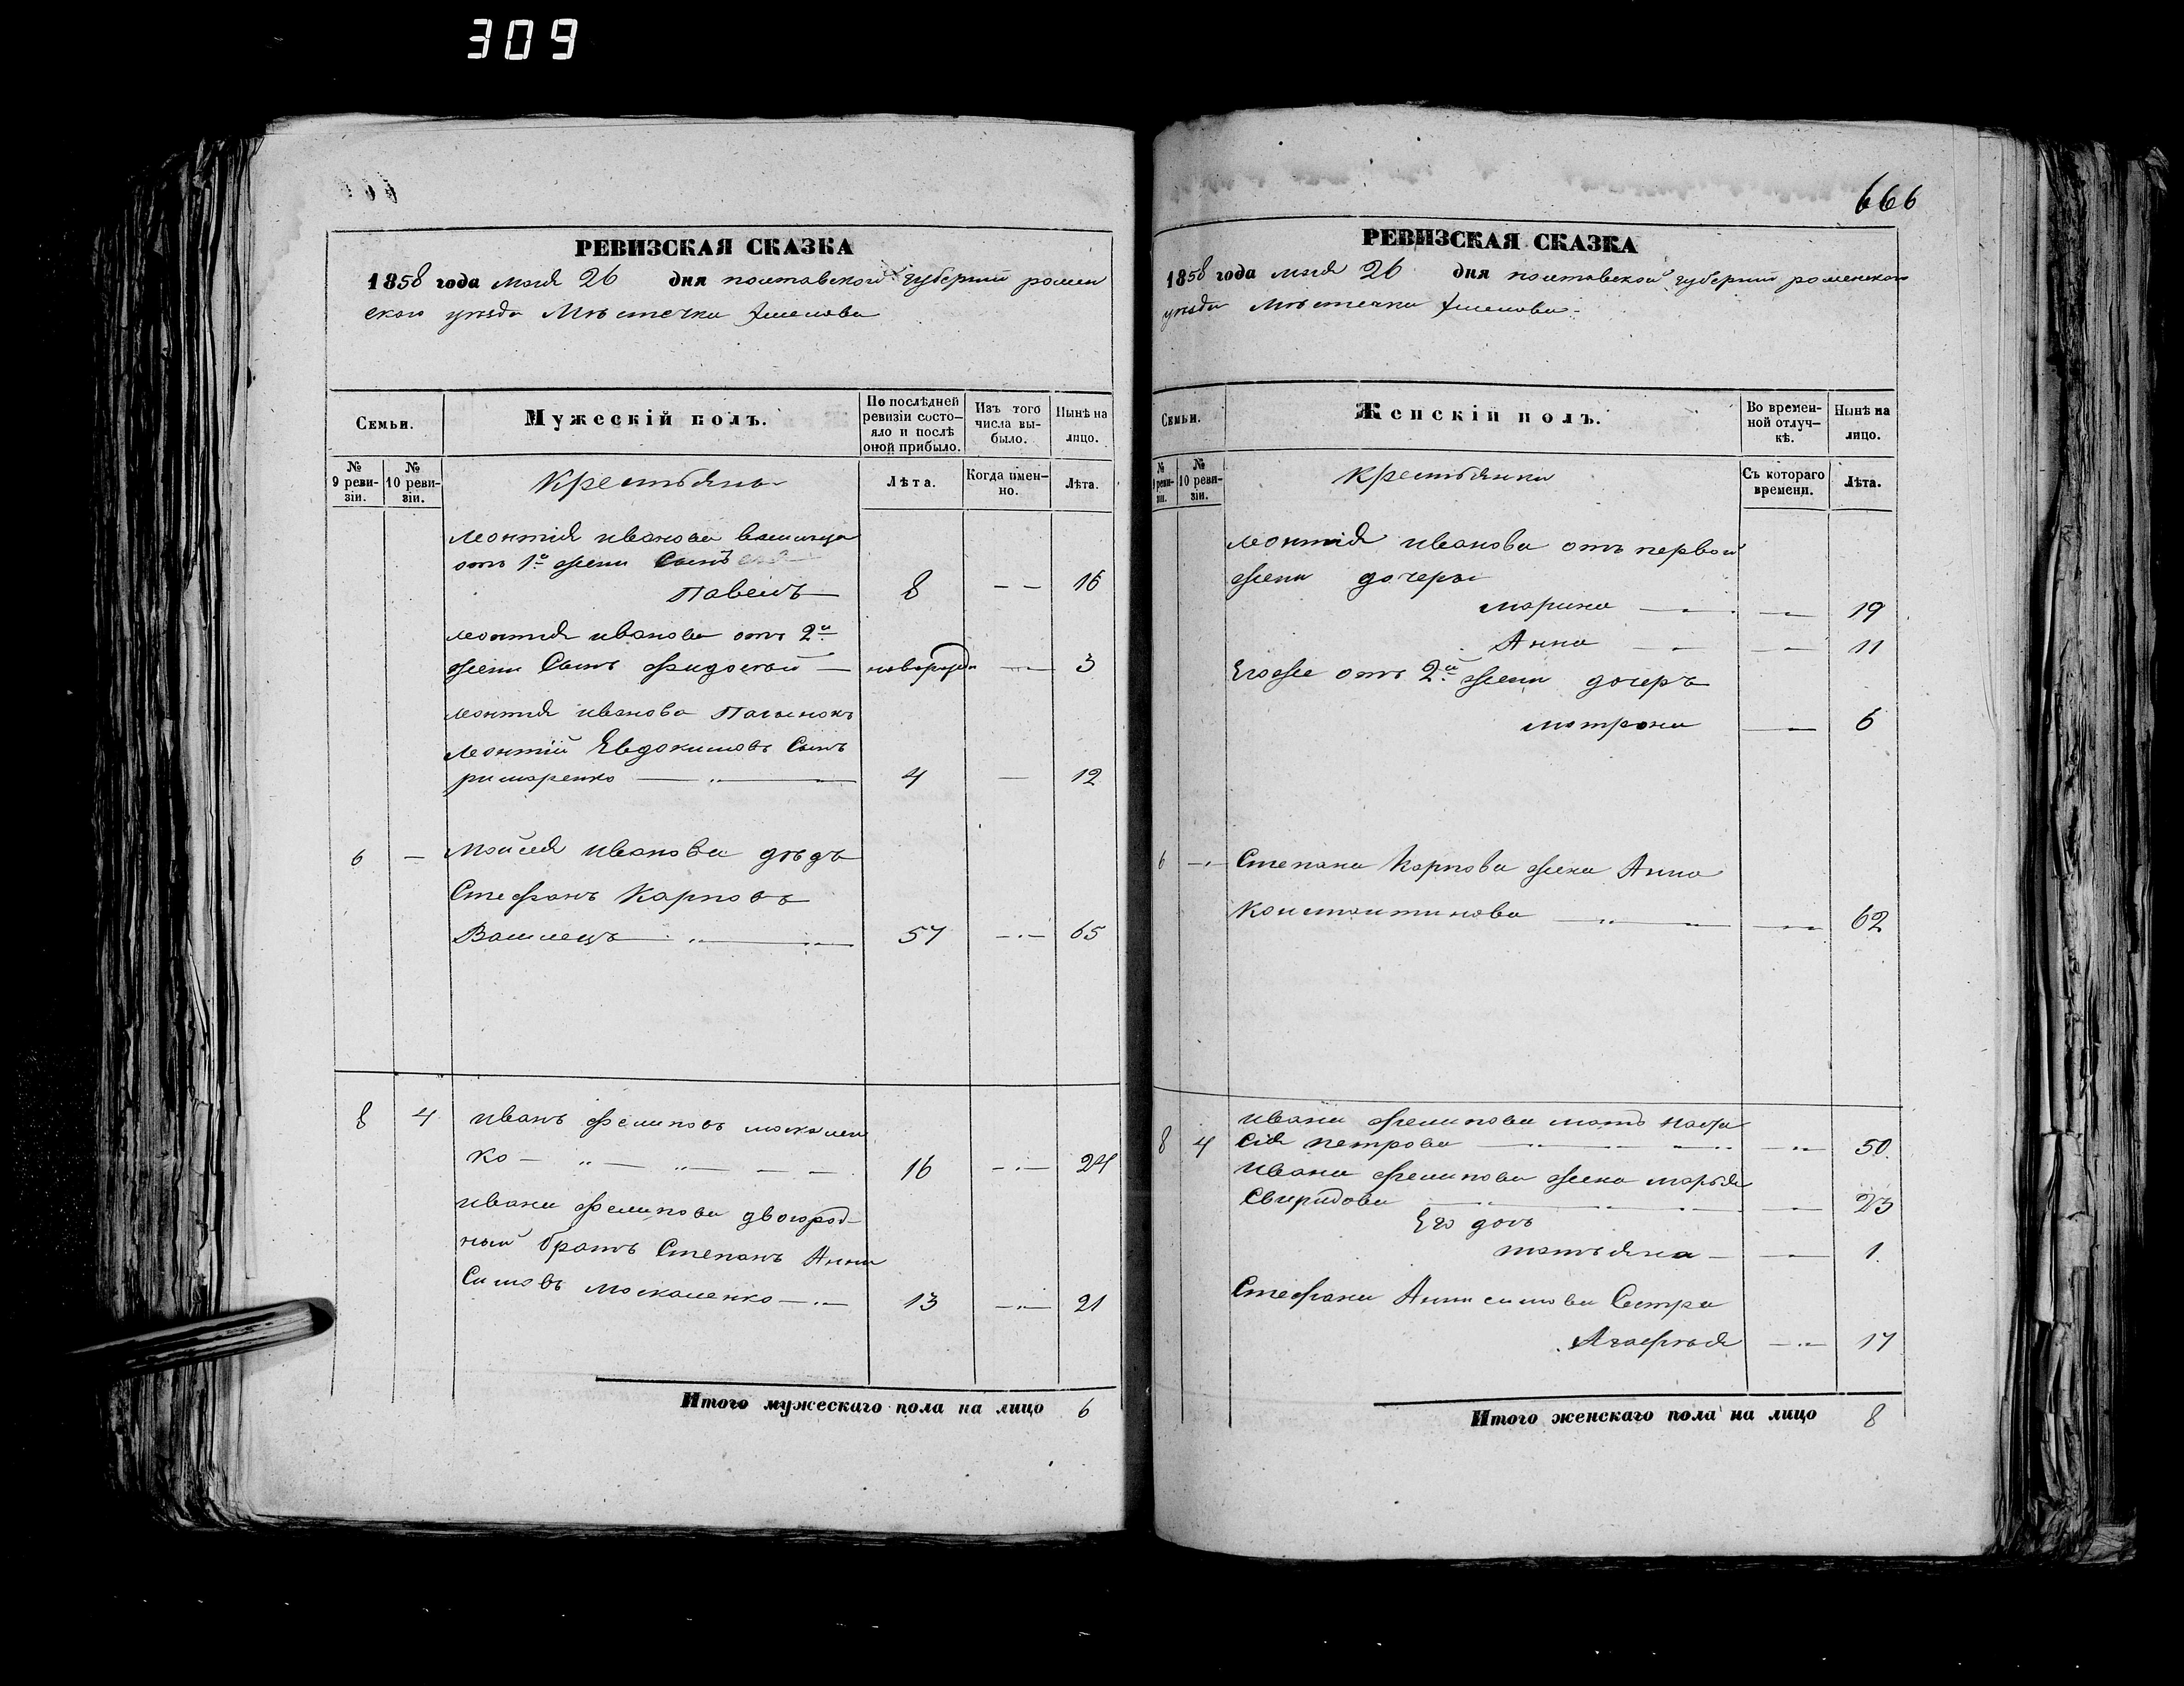 309
666
РЕВИЗСКАЯ СКАЗКА
1858 года мая 26 дня полтавской губернии ромен
ского уезда Мѣстечка Смелова
Семьи.
Мужескій полъ.
По послѣдней ревизіи состо-яло и послѣ оной прибыло.
Изъ того числа вы-было.
Нынѣ на лицо.
№ 9 реви-зіи.
№ 10 реви-зіи.
Крестьяне
Лѣта.
Когда имен-но.
Лѣта.
Леонтія иванова
отъ 1й жени Сынъ
Павелъ 8 — — 16
Леонтія иванова отъ 2й
жени Сынъ Фидосей — новорожден — 3
Леонтія иванова Пасынокъ
Леонтій Евдокимовъ Сынъ
римаренко — 4 — 12
6 — Мойсея иванова дѣдъ
Стефанъ Карповъ
57 — 65
8 4 иванъ Фелиповъ москален
ко — 16 — 24
ивана Фелипова двоюрод-
ный братъ Степанъ Анни
симовъ Москаленко — 13 — 21
Итого мужескаго пола на лицо 6
РЕВИЗСКАЯ СКАЗКА
1858 года мая 26 дня полтавской губернии роменского
уезда Мѣстечка Смелова
Семьи.
Женскій полъ.
Во времен-ной отлуч-кѣ.
Нынѣ на лицо.
№ 9 реви-зіи.
№ 10 реви-зіи.
крестьянки
Съ котораго времени.
Лѣта.
Леонтія иванова отъ первой
жени дочеры
марина — — 19
Анна — — 11
Егоже отъ 2й жени дочеръ
мотрона — 6
6 — Степана Карпова жена Анна
Константинова — — 62
8 4 ивана Фелипова мать Наста
сія петрова — — 50.
ивана Фелипова жена марья
Свиридова — — 23
Его дочь
татьяна — — 1.
Стефана Аннисимова Сестра
Агафья — 17
Итого женскаго пола на лицо 8